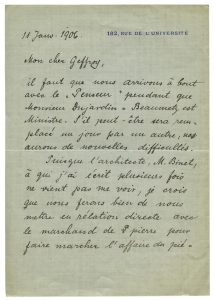 182, RUE DE L'UNIVERSITÉ
18 Janv. 1906
Mon cher Geffroy,
il faut que nous arrivons à bout
avec le "Penseur" pendant que
Monsieur Dujardin-Beaumetz est
Ministre. S'il peut-être sera rem-
placé un jour par un autre, nos
aurons de nouvelles difficultés.
Puisque l'architecte, M. Binet,
à qui j'ai écrit plusieurs fois
ne vient pas me voir, je crois
que nous ferons bien de nous
mettre en rélation directe avec
le marchand de pierre pour
faire marcher l'affaire du pié-